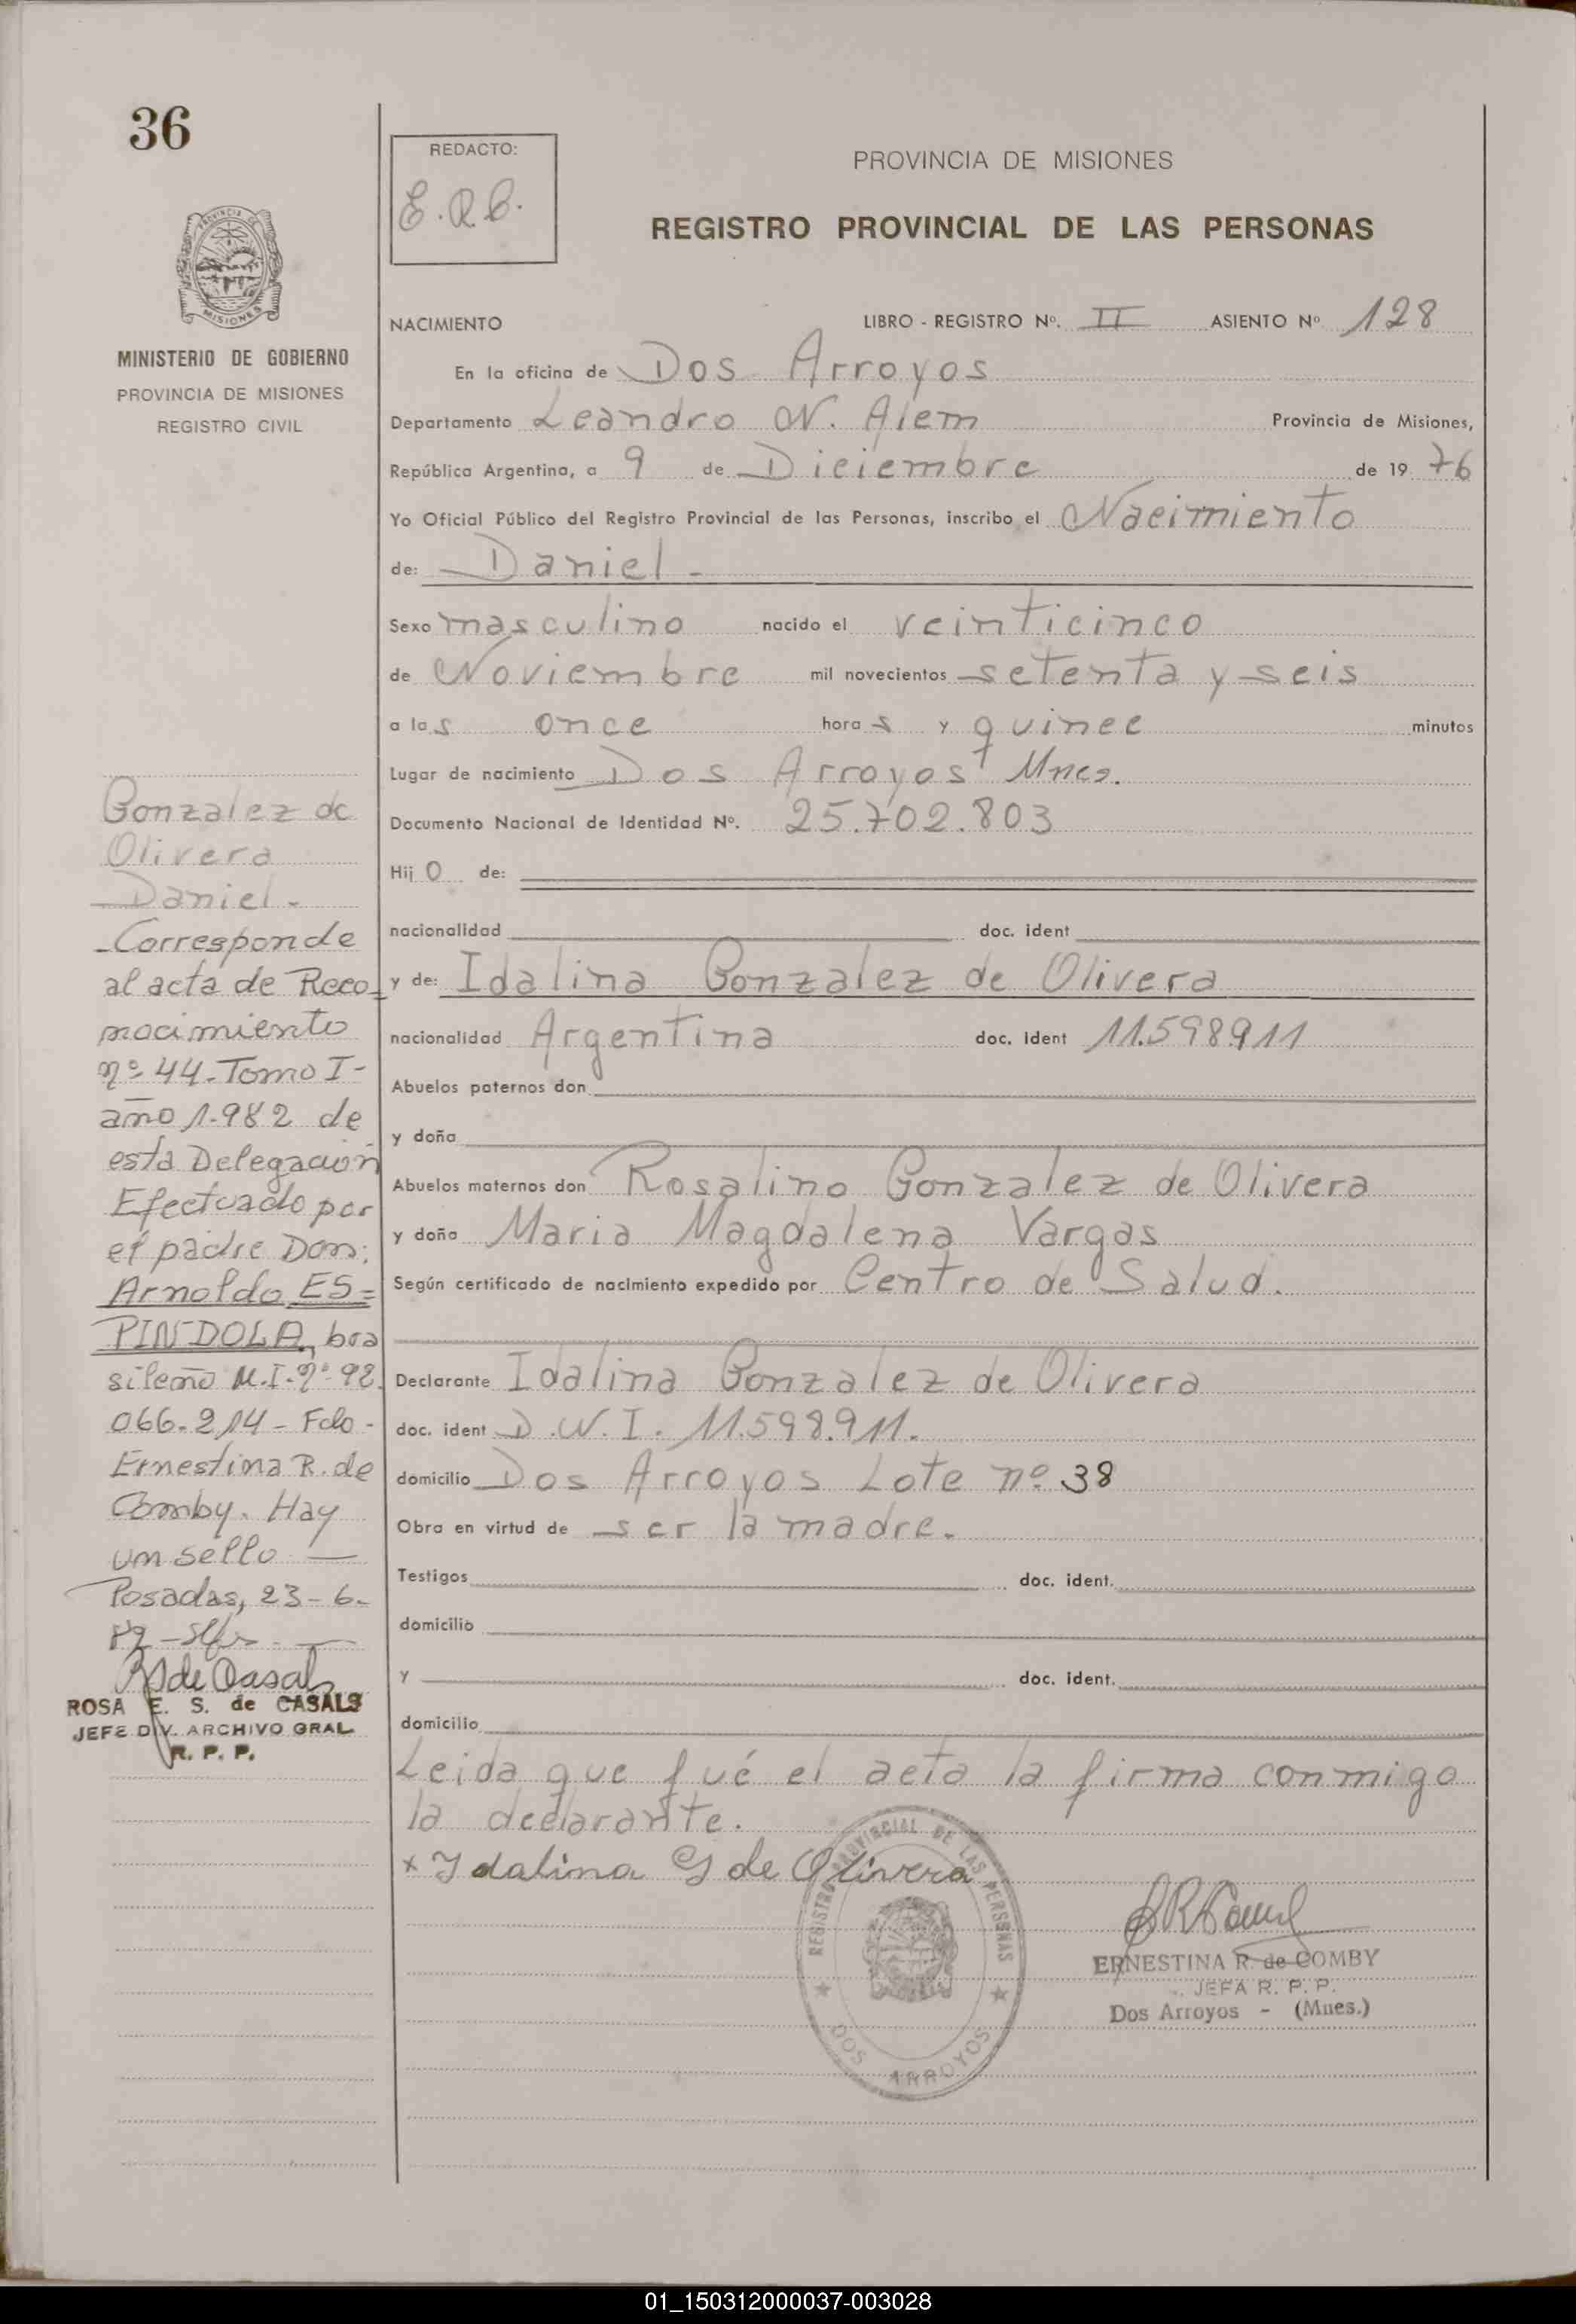 36
REDACTO:
E.R.C.
PROVINCIA DE MISIONES
REGISTRO PROVINCIAL DE LAS PERSONAS
MINISTERIO DE GOBIERNO
PROVINCIA DE MISIONES
REGISTRO CIVIL
NACIMIENTO LIBRO - REGISTRO Nº. II ASIENTO Nº 128
En la oficina de Dos Arroyos
Departamento Leandro N. Alem Provincia de Misiones,
República Argentina, a 9 de Diciembre de 19 76
Yo Oficial Público del Registro Provincial de las Personas, inscribo el Nacimiento
de: Daniel -
Sexo masculino nacido el veinticinco
de Noviembre mil novecientos setenta y seis
a las once horas y quince minutos
Lugar de nacimiento Dos Arroyos Mnes.
Documento Nacional de Identidad Nº. 25.702.803
Hijo de:
nacionalidad doc. ident
y de: Idalina Gonzalez de Olivera
nacionalidad Argentina doc. ident 11.598911
Abuelos paternos don
y doña
Abuelos maternos don Rosalino Gonzalez de Olivera
y doña Maria Magdalena Vargas
Según certificado de nacimiento expedido por Centro de Salud.
Declarante Idalina Gonzalez de Olivera
doc. ident D.N.I. 11.598.911.
domicilio Dos Arroyos Lote nº 38
Obra en virtud de ser la madre.
Testigos doc. ident.
domicilio
y doc. ident.
domicilio
Leida que fué el acta la firma conmigo
la declarante.
x Ydalina G de Olivera
REGISTRO PROVINCIAL DE LAS PERSONAS
DOS ARROYOS
ERNESTINA R. de COMBY
JEFA R. P. P.
Dos Arroyos - (Mnes.)
Gonzalez de
Olivera
Daniel -
Corresponde
al acta de Reco=
nocimiento
nº 44. Tomo I -
año 1.982 de
esta Delegación
Efectuado por
el padre Don:
Arnoldo ES=
PINDOLA, bra
sileño M.I. nº 92.
066.214 - Fdo -
Ernestina R. de
Comby. Hay
un sello —
Posadas, 23-6-
ROSA E. S. de CASALS
JEFE DIV. ARCHIVO GRAL
R. P. P.
01_150312000037-003028